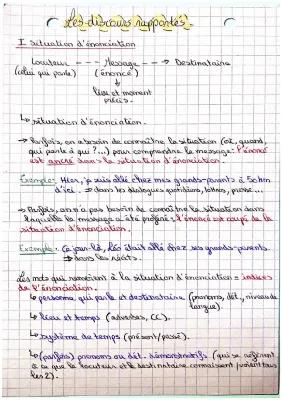 Les discours rapportés.
I situation d'énonciation
Locuteur - - - Message - - - → Destinataire
(celui qui parle) (énoncé)
↓
lieu et moment
précis.
↳ situation d'énonciation.
→ Parfois, on a besoin de connaître la situation (où, quand,
qui parle à qui ?...) pour comprendre le message : l'énoncé
est ancré dans la situation d'énonciation.
Exemple : Hier, je suis allé chez mes grands-parents à 50km
d'ici. → dans les dialogues quotidiens, lettres, presse...
→ Parfois, on n'a pas besoin de connaître la situation dans
laquelle le message a été proféré : l'énoncé est coupé de la
situation d'énonciation.
Exemple : Ce jour-là, Léo était allé chez ses grands-parents.
→ dans les récits.
Les mots qui renvoient à la situation d'énonciation = indices
de l'énonciation.
↳ personne qui parle et destinataire (pronoms, dét., niveau de
langue).
↳ lieu et temps (adverbes, CC).
↳ système de temps (présent/passé).
↳ (parfois) pronoms ou dét. démonstratifs (qui se réfèrent
à ce que le locuteur et le destinataire connaissent / voient tous
les 2).